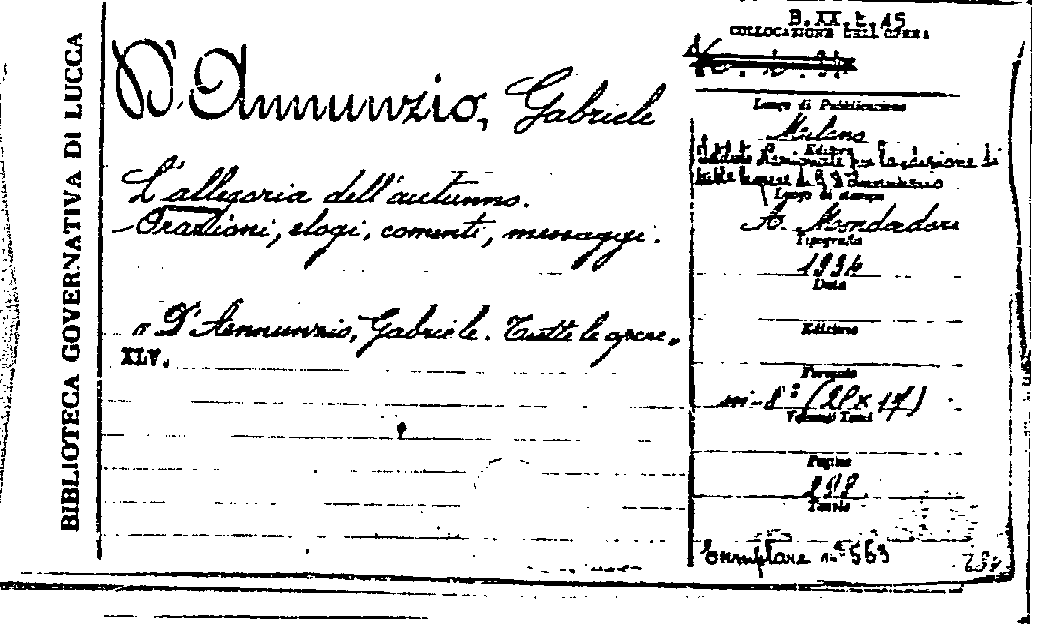 BIBLIOTECA GOVERNATIVA DI LUCCA
D'Annunzio, Gabriele
L'allegoria dell'autunno.
Orazioni, elogi, comenti, messaggi.
D'Annunzio, Gabriele. Tutte le opere.
XLV.
B. XX. t. 15
COLLOCAZIONE DELL'OPERA
Luogo di Pubblicazione
Milano
Editore
Istituto Nazionale per la edizione di
tutte le opere di G. D'Annunzio
Luogo di stampa
A. Mondadori
Tipografia
1934
Data
Edizione
Formato
in-8° (28 x 19)
Volumi Tomi
Pagine
298
Tavole
Esemplare n° 563